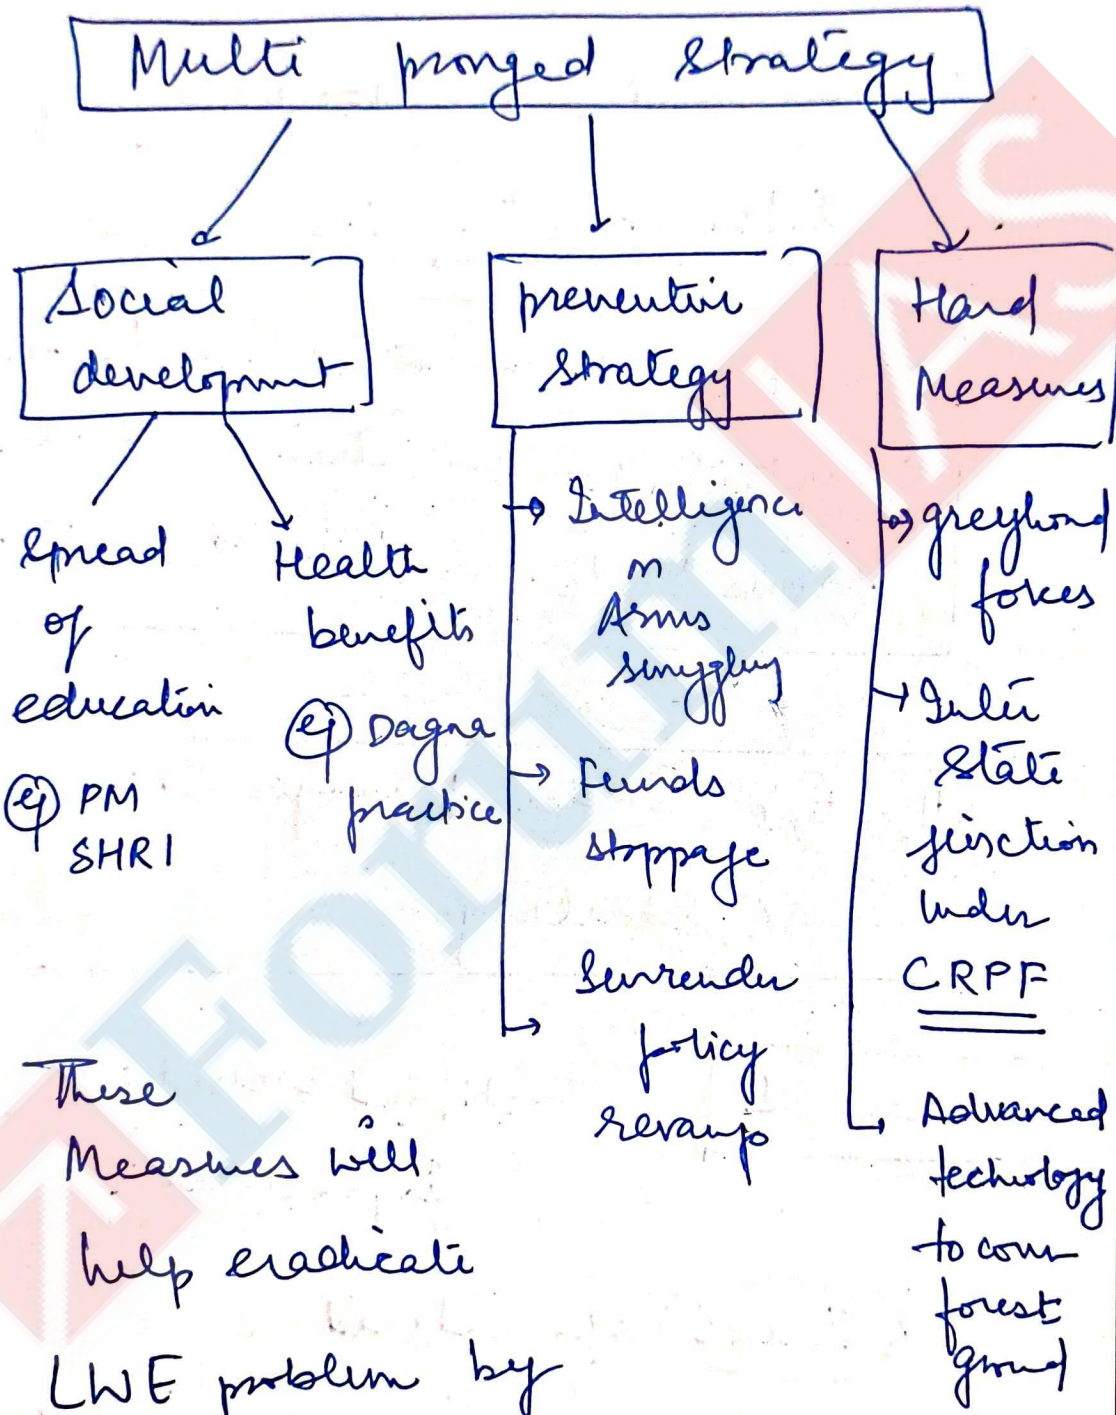 Multi pronged Strategy
Social
development
Spread
of
education
eg PM
SHRI
Health
benefits
eg Dagna
practice
preventive
strategy
Intelligence
on
Arms
smuggling
Funds
stoppage
Surrender
policy
revamp
Hard
Measures
greyhond
forces
Inter
State
under
CRPF
Advanced
technology
to
forest
ground
These
Measures will
help eradicate
LWE problem by
Forum IAS